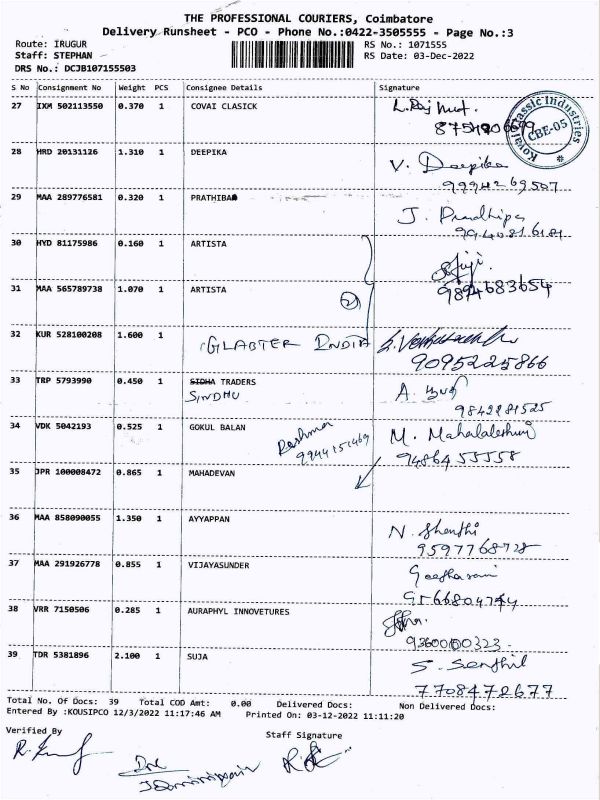 THE PROFESSIONAL COURIERS, Coimbatore
Delivery Runsheet - PCO - Phone No.:0422-3505555 - Page No.:3
Route: IRUGUR RS No.: 1071555
Staff: STEPHAN RS Date: 03-Dec-2022
DRS No.: DCJB107155503
S No Consignment No Weight PCS Consignee Details Signature
27 IXM 502113550 0.370 1 COVAI CLASICK
Kovai Classic Industries CBE-05
28 HRD 20131126 1.310 1 DEEPIKA V. Deepika
29 MAA 289776581 0.320 1 PRATHIBA J.
30 HYD 81175986 0.160 1 ARTISTA
31 MAA 565789738 1.070 1 ARTISTA 2
9894683654
32 KUR 528100208 1.600 1 GLABTER INDIA
9095225866
33 TRP 5793990 0.450 1 SIDHA TRADERS A.
SINDHU
34 VDK 5042193 0.525 1 GOKUL BALAN Reshma M.
9944151469
9486455558
35 JPR 100008472 0.865 1 MAHADEVAN
36 MAA 858090055 1.350 1 AYYAPPAN N. Shanthi
9597768728
37 MAA 291926778 0.855 1 VIJAYASUNDER
9566804744
38 VRR 7150506 0.285 1 AURAPHYL INNOVETURES
9360000323
39 TDR 5381896 2.100 1 SUJA S. Senthil
7708472677
Total No. Of Docs: 39 Total COD Amt: 0.00 Delivered Docs: Non Delivered Docs:
Entered By :KOUSIPCO 12/3/2022 11:17:46 AM Printed On: 03-12-2022 11:11:20
Verified By Staff Signature